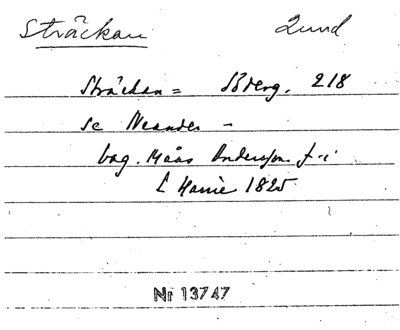 Sträckan Lund
Sträckan = Söderg. 218
se Neander -
bag. Måns Andersson f. i
L Harrie 1825
Nr 13747